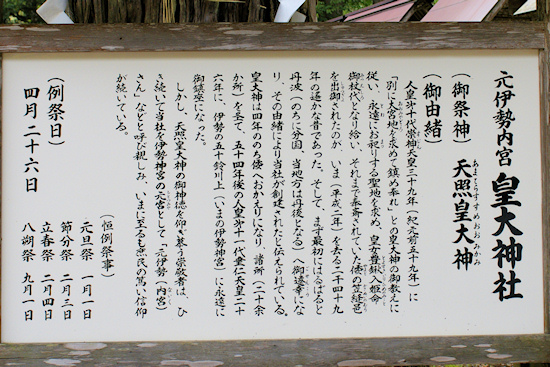 元伊勢内宮 皇大神社
(御祭神) 天照皇大神
あまてらすすめおおみかみ
(御由緒)
人皇第十代崇神天皇三十九年(紀元前五十九年)に
「別に大宮地を求めて鎮め奉れ」との皇大神の御教えに
従い、永遠にお祀りする聖地を求め、皇女豊鋤入姫命
御杖代となり給い、それまで奉斎されていた倭の笠縫邑
を出御されたのが、いま(平成二年)を去る二千四十九
年の遥かな昔であった。そして、まず最初にはるばると
丹波(のちに分国、当地方は丹後となる)へ御遷幸にな
り、その由緒により当社が創建されたと伝えられている。
皇大神は四年ののち倭へおかえりになり、諸所(二十余
か所)を経て、五十四年後の人皇第十一代垂仁天皇二十
六年に、伊勢の五十鈴川上(いまの伊勢神宮)に永遠に
御鎮座になった。
しかし、天照皇大神の御神徳を仰ぎ慕う崇敬者は、ひ
き続いて当社を伊勢神宮の元宮として「元伊勢(内宮)
さん」などと呼び親しみ、いまに至るも庶民の篤い信仰
が続いている。
(例祭日)
四月二十六日
(恒例祭事)
元旦祭 一月一日
節分祭 二月三日
立春祭 二月四日
八朔祭 九月一日